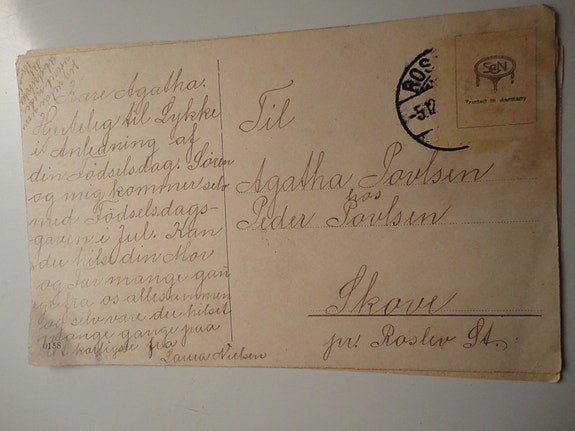 Kære Agatha.
Hertelig til Lykke
i Anledning af
din Födselsdag. Sören
og mig kommer selv
med Födselsdags-
gaven i Jul. Kan
du hilse din Mor
og Far mange gan
ge fra os allesammen
og selv være du hilset
mange gange paa
kærligste fra
Laura Nielsen
0188
Til
Agatha Povlsen
hos
Peder Povlsen
Skove
pr. Roslev St.
ROS
-5.12
S&N
Printed in Germany